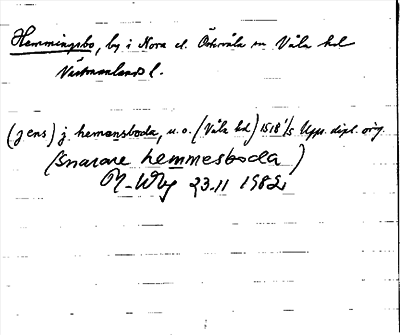 Hemmingsbo, by i Nora el. Östervåla sn Våla hd
Västmanlands l.
(Jens) j. hemansboda, u.o. (Våla hd) 1518 1/5 Upps. dipl. orig.
(snarare hemmesboda)
23.11 1982